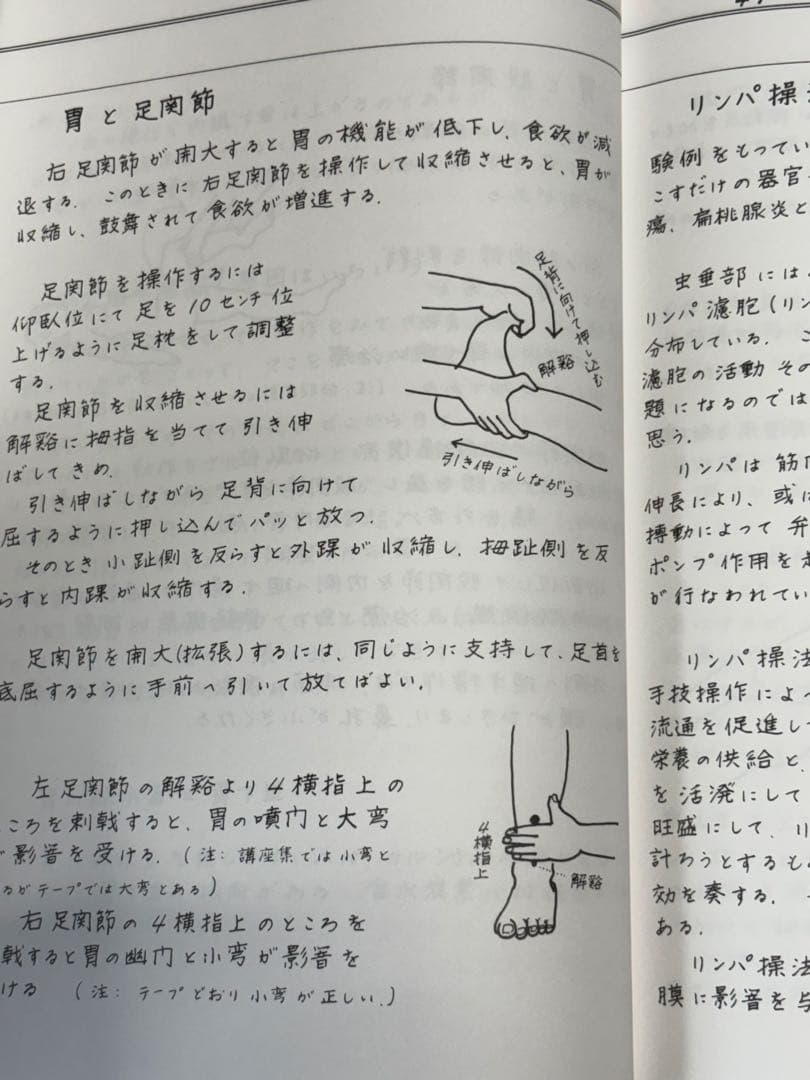 胃と足関節
右足関節が開大すると胃の機能が低下し、食欲が減
退する. このときに右足関節を操作して収縮させると、胃が
収縮し、鼓舞されて食欲が増進する.
足関節を操作するには
仰臥位にて足を10センチ位
上げるように足枕をして調整
する.
足関節を収縮させるには
解谿に拇指を当てて引き伸
ばしてきめ.
引き伸ばしながら足背に向けて
屈するように押し込んでパッと放つ.
そのとき小趾側を反らすと外踝が収縮し.拇趾側を反
らすと内踝が収縮する.
足関節を開大(拡張)するには、同じように支持して、足首を
底屈するように手前へ引いて放てばよい.
足背に向けて押し込む
解谿
引き伸ばしながら
左足関節の解谿より4横指上の
ころを刺戟すると、胃の噴門と大弯
影響を受ける.(注:講座集では小弯と
るがテープでは大弯とある)
右足関節の4横指上のところを
戟すると胃の幽門と小弯が影響を
ける (注:テープどおり小弯が正しい.)
4横指上
解谿
リンパ操
験例をもってい
こすだけの器官
瘍、扁桃腺炎と
虫垂部には
リンパ濾胞(リン
分布している.
濾胞の活動その
題になるのでは
思う.
リンパは筋
伸長により、或は
搏動によって弁
ポンプ作用を
が行なわれてい
リンパ操法
手技操作によっ
流通を促進し
栄養の供給と、
を活溌にして
旺盛にして、リ
計ろうとするも
効を奏する.
ある.
リンパ操法
膜に影響を与